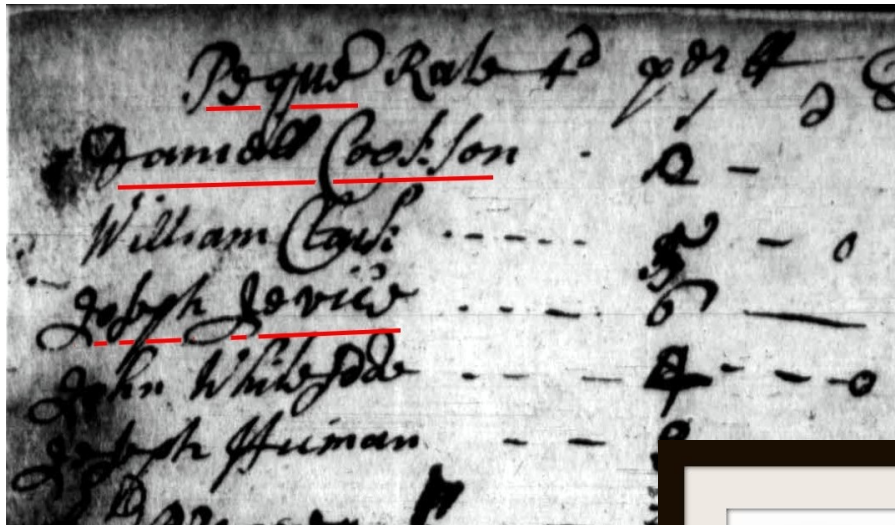 Peque Rate 4d per £
Daniell Cookson - 2 -
William Clark ----- 5 - 0
Joseph Jervice --- 6
John Whitesade --- 4 --- 0
Joseph Human -- 8